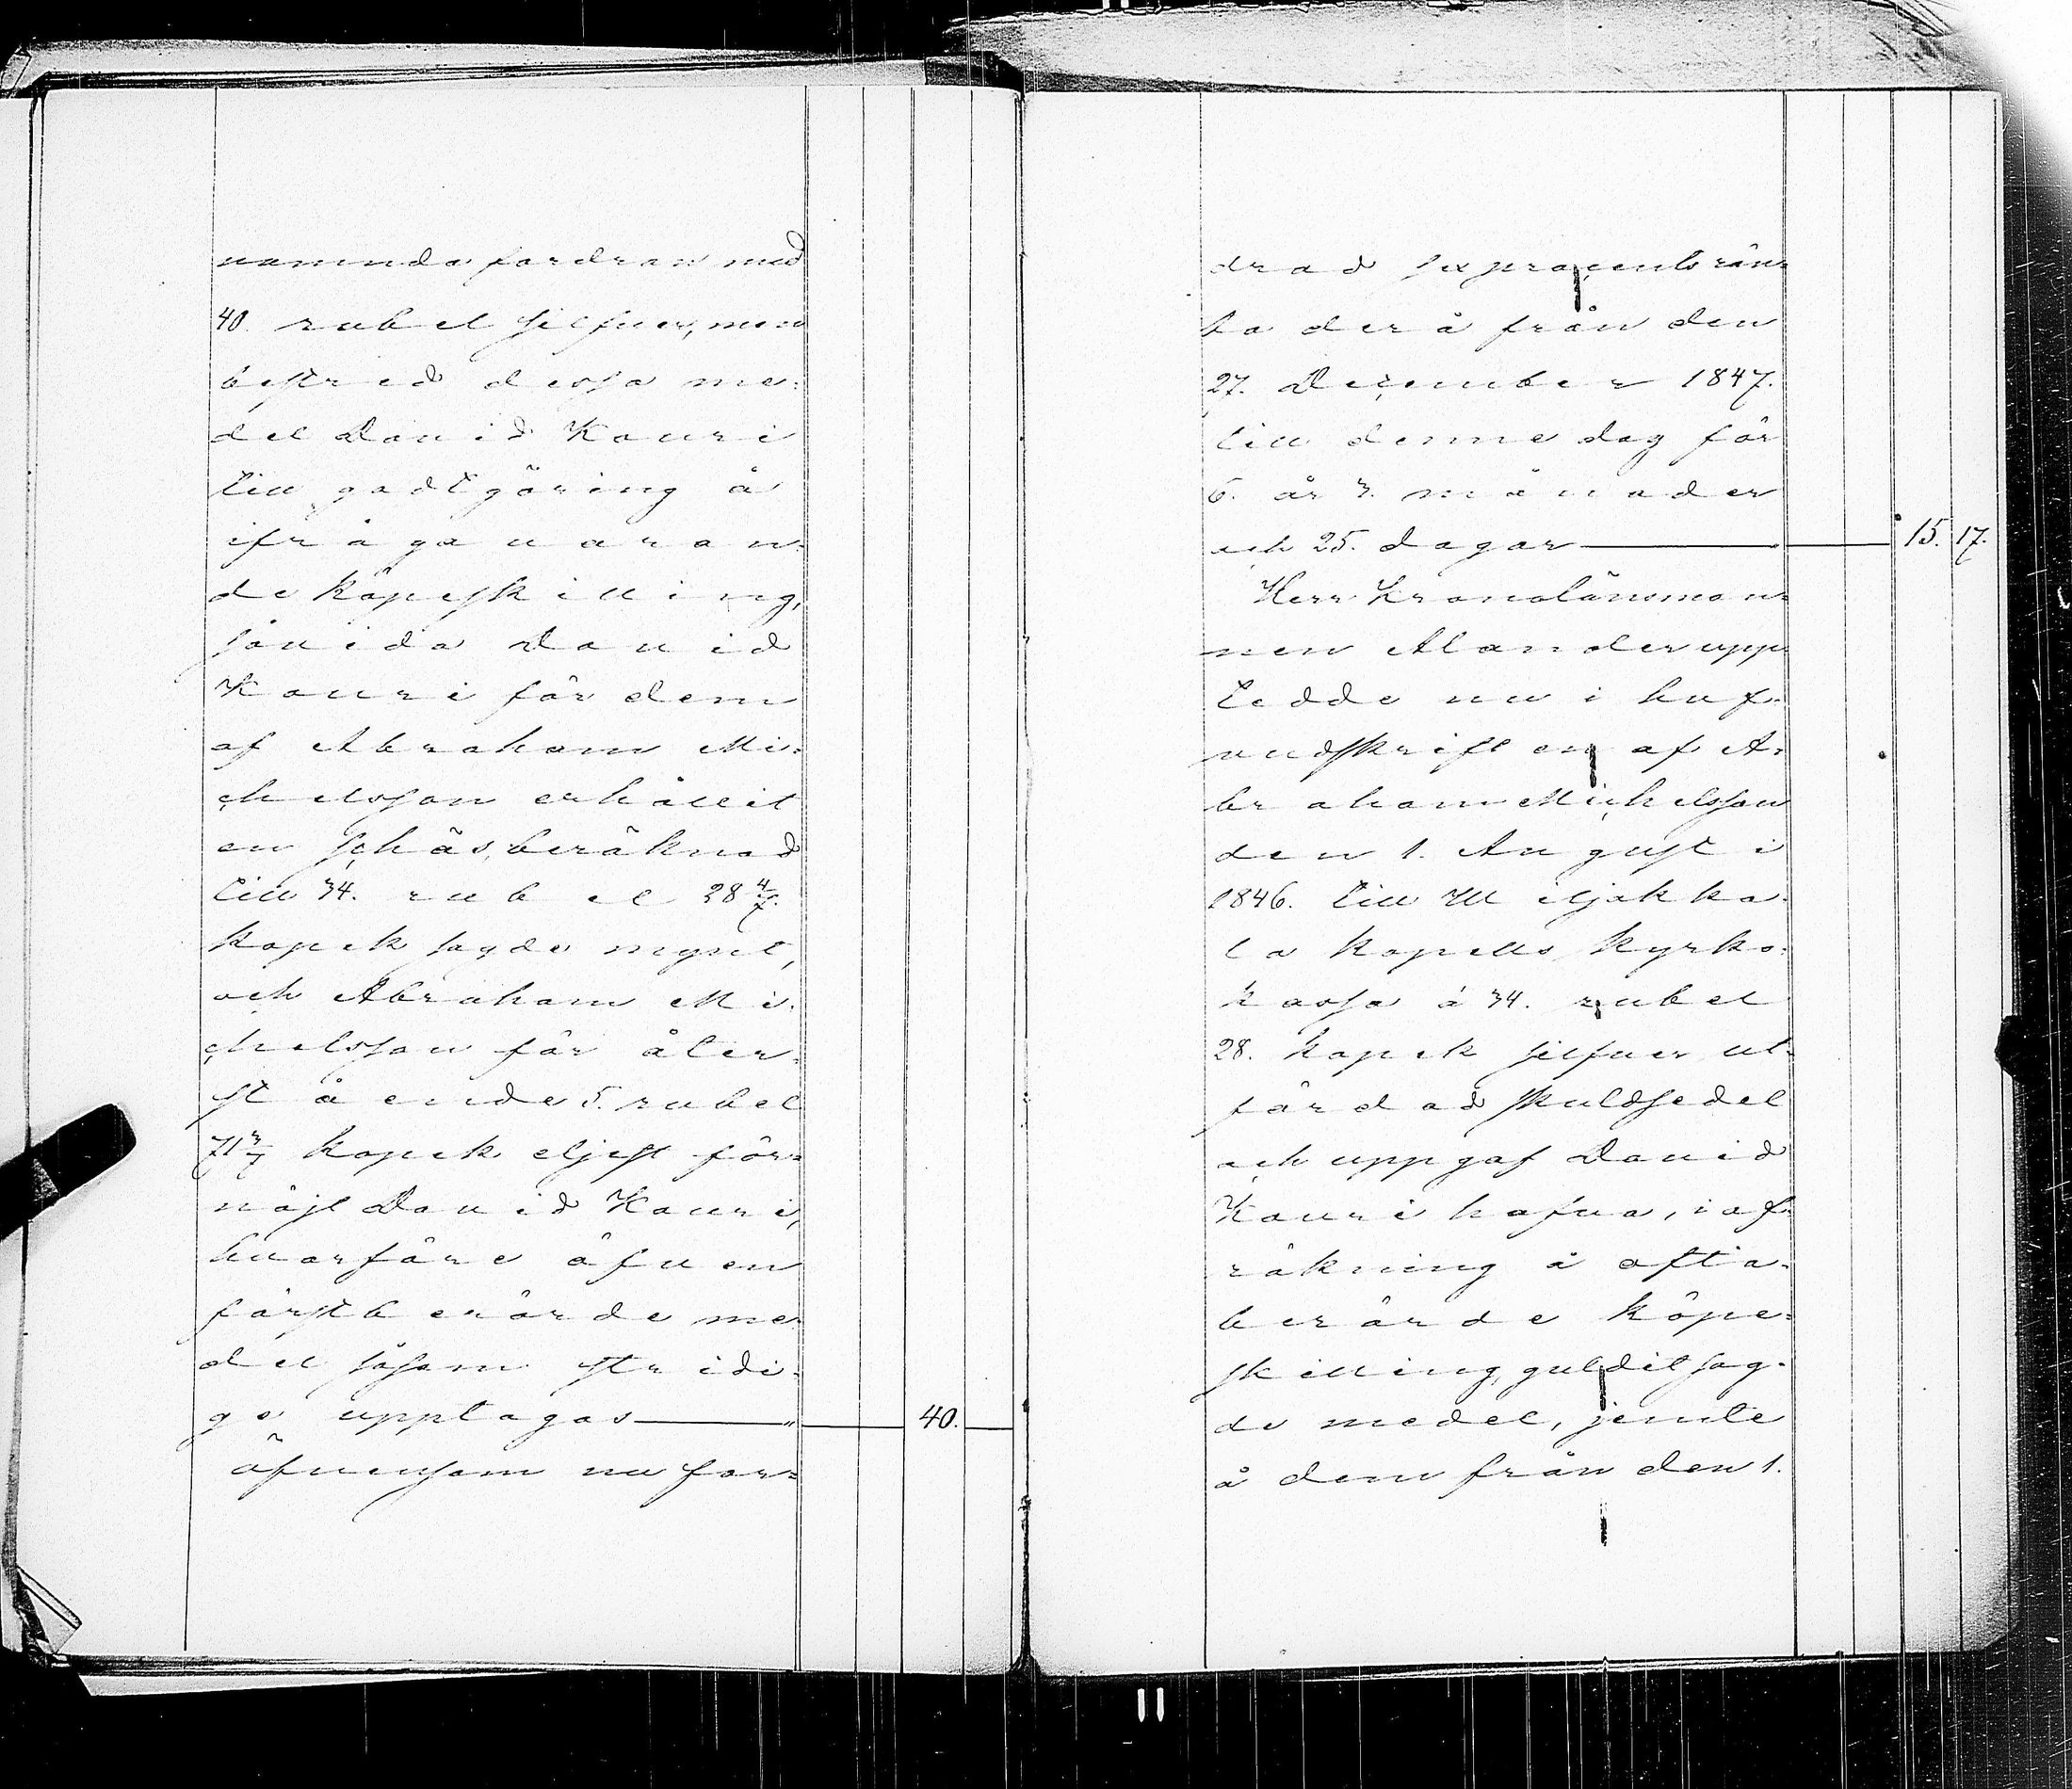 namnda fordran med
40. rubel silfver, men
bestred dessa me-
del David Kauri
till godtgöring å
ifrågavaran-
de köpeskilling,
såvida David
Kauri för dem
af Abraham Mi-
chelsson erhållit
en schäs, beräknad
till 34. rubel 28 4/7.
kopek sagde mynt,
och Abraham Mi-
chelsson för åter-
stående 5. rubel
71 3/7 kopek eljest för-
nöjt David Kauri,
hvarföre äfven
förstberörde me-
del såsom stridi-
ga upptagas — " 40.
äfvensom nu for-
drad sex procents rän-
ta derå från den
27. December 1847.
till denne dag för
6. år 3. månader
och 25. dagar — 15. 17.
Herr Kronolänsman-
nen Alander upp-
tedde nu i huf-
vudskriften af A-
braham Michelsson
den 1. Augusti
1846. till Miljakka-
la Kapells Kyrko-
kassa å 34. rubel
28. kopek silfver ut-
färdad skuldsedel
och uppgaf David
Kauri hafva, i af-
räkning å ofta-
berörde köpe-
skilling, guldit sag-
de medel, jemte
å dem från den 1.